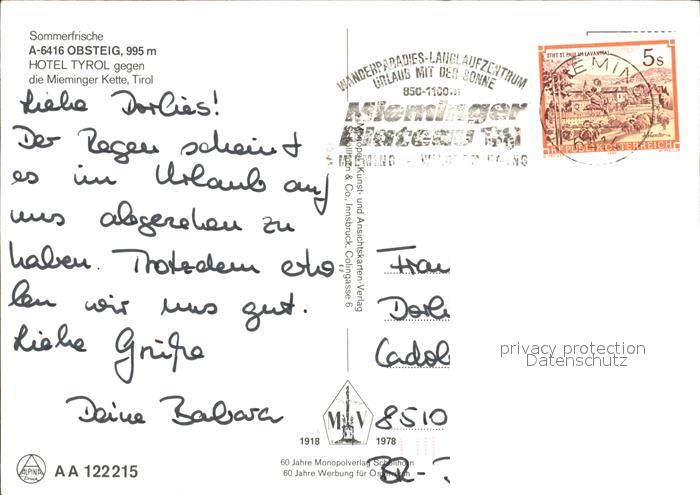 Sommerfrische
A-6416 OBSTEIG, 995 m
HOTEL TYROL gegen
die Mieminger Kette, Tirol
Liebe Dorlies!
Der Regen scheint
es im Urlaub auf
uns abgesehen zu
haben. Trotzdem erho-
len wir uns gut.
Liebe Grüße
Deine Barbara
ALPINA
Druck
AA 122215
WANDERPARADIES-LANGLAUFZENTRUM
URLAUB MIT DER SONNE
850-1100m
Mieminger
Plateau
STIFT ST. PAUL IM LAVANTTAL
5s
REPUBLIK ÖSTERREICH
MIEMING
Kunst- und Ansichtskarten-Verlag
& Co., Innsbruck, Colingasse 6
Frau
Dorli
Cadol
8510
BR-
M V
1918 1978
60 Jahre Monopolverlag Schöllhorn
60 Jahre Werbung für Österreich
privacy protection
Datenschutz